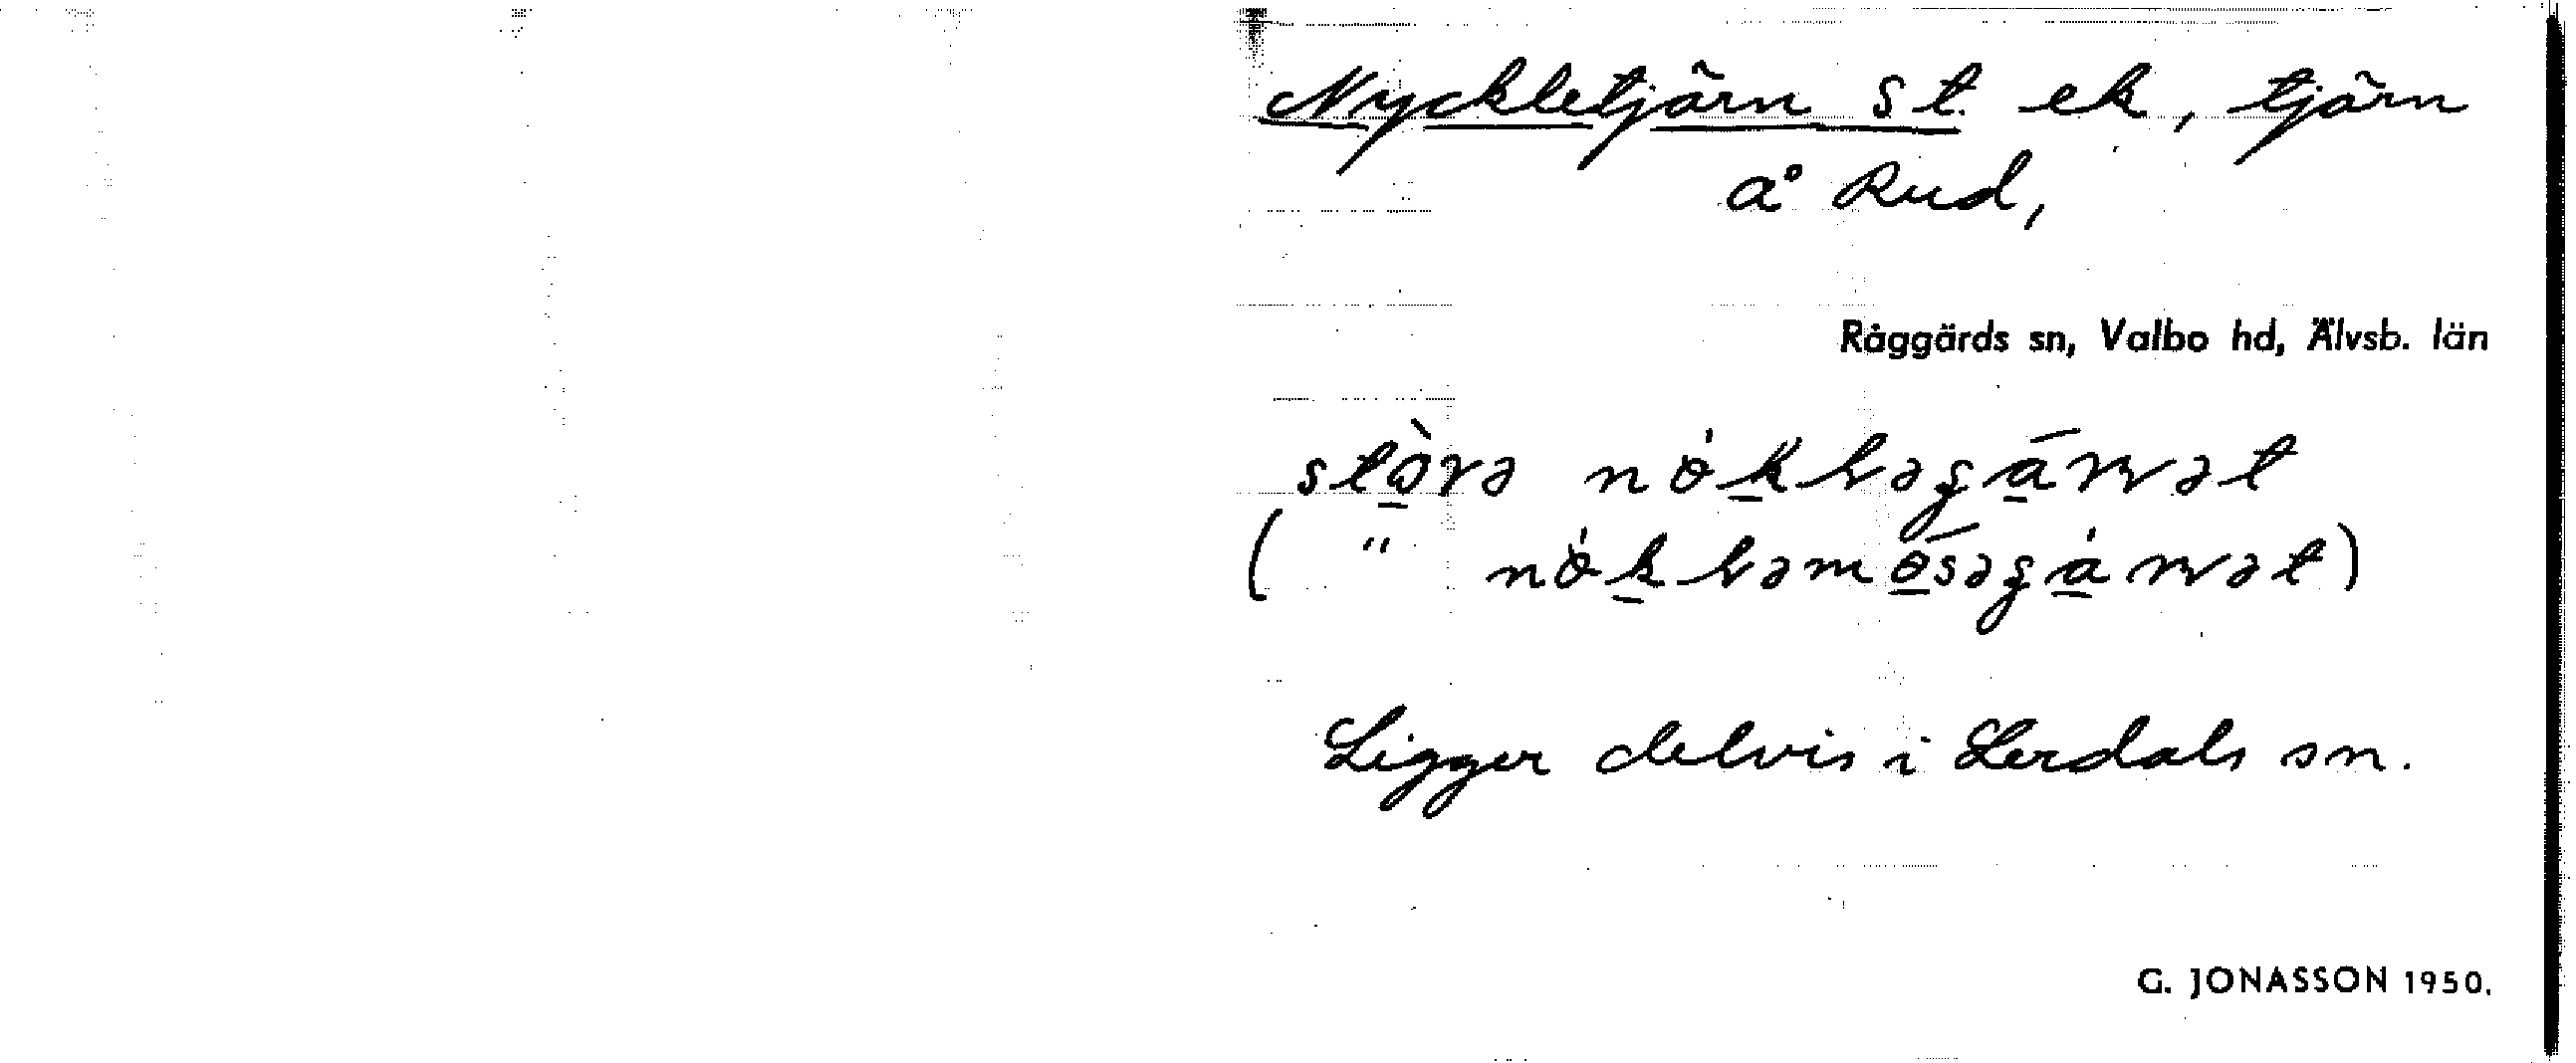 Nyckletjärn St ek, tjärn
å Rud,
Råggärds sn, Valbo hd, Älvsb. län
Ligger delvis i Lerdals sn.
G. JONASSON 1950.